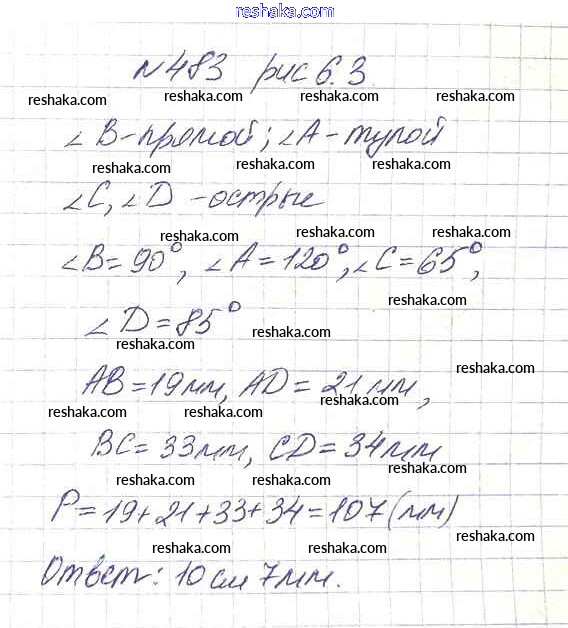 reshaka.com
№483 рис 6.3
reshaka.com reshaka.com reshaka.com reshaka.com
∠B-прямой; ∠A-тупой
reshaka.com reshaka.com
∠C, ∠D -острые
reshaka.com reshaka.com
∠B=90°, ∠A=120°, ∠C=65°,
reshaka.com reshaka.com reshaka.com
reshaka.com
∠D=85°
reshaka.com
reshaka.com
reshaka.com
AB=19мм, AD=21мм,
reshaka.com reshaka.com reshaka.com
BC=33мм, CD=34мм
reshaka.com
reshaka.com reshaka.com
P=19+21+33+34=107(мм)
reshaka.com reshaka.com
Ответ: 10см 7мм.
reshaka.com reshaka.com